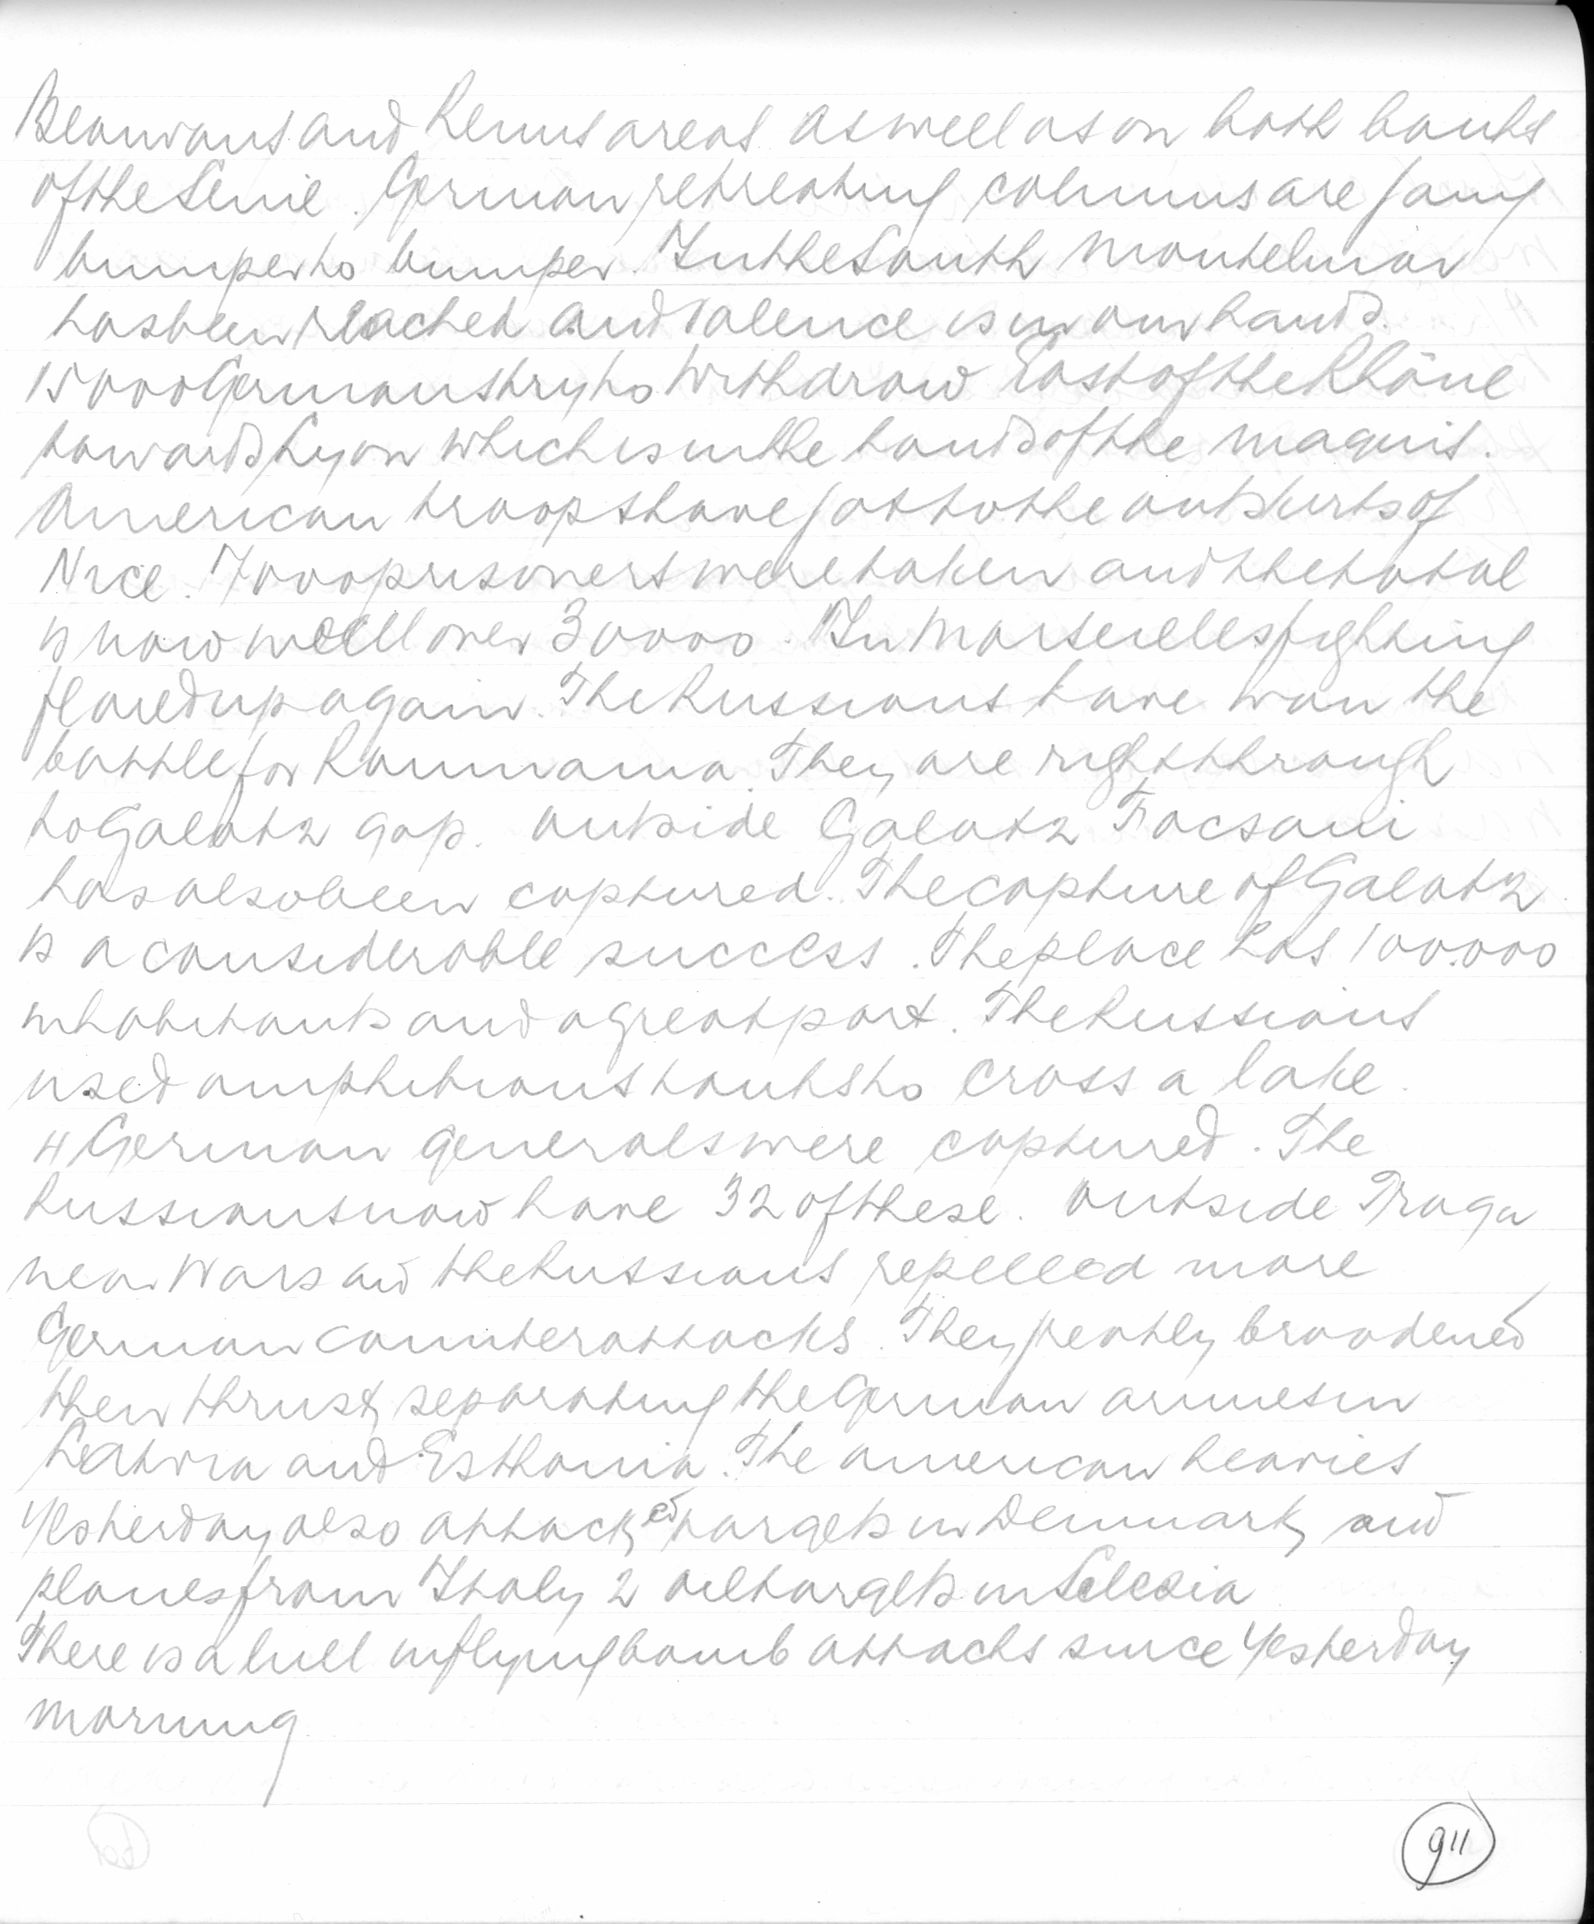 Beauvais and Reims areas as well as on both banks
of the Seine. German retreating columns are jamg
bumper to bumper. In the South Montelimar
has been reached and Valence is in our hands.
15000 Germans try to withdraw East of the Rhône
towards Lyon which is in the hands of the maquis.
American troops have got to the outskirts of
Nice. 7000 prisoners were taken and the total
is now well over 30000. In Marseilles fighting
flared up again. The Russians have won the
battle for Roumania. They are right through
to Galatz gap. Outside Galatz Focsani
has also been captured. The capture of Galatz
is a considerable success. The place has 100.000
inhabitants and a great port. The Russians
used amphibious tanks to cross a lake.
4 German generals were captured. The
Russians now have 32 of these. Outside Praga
near Warsaw the Russians repelled more
German counterattacks. They greatly broadened
their thrust separating the German armies in
Latvia and Esthonia. The American heavies
yesterday also attacked targets in Denmark and
planes from Italy 2 oil targets in Silesia
There is a lull in flying bomb attacks since yesterday
morning
911